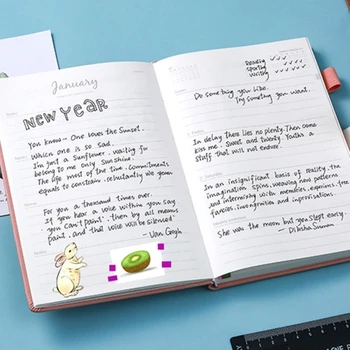 January
NEW YEAR
You know – One loves the Sunset.
Which one is so sad.
Im just a Sunflower, waiting for
belong to me only Sunshine.
The life most of the time, commitments
equals to constrain, reluctantly we yearn
For you a thousand times over.
If you hear a voice within you say
you can't paint, then by all means
paint, and that voice will be silenced
– Van Gogh
Reading
sporting
writing
Do something you like.
Try something you want.
In delay there lies no plenty. Then come
kiss me, Sweet and twenty. Youth's a
stuff that will not endure.
In an insignificant basis of reality, the
imagination spins, weaving new patterns
and intermixing with memories, experiences, free
fancies, incongruities and improvisations.
She was the moon but you slept early.
– Diksha Suman